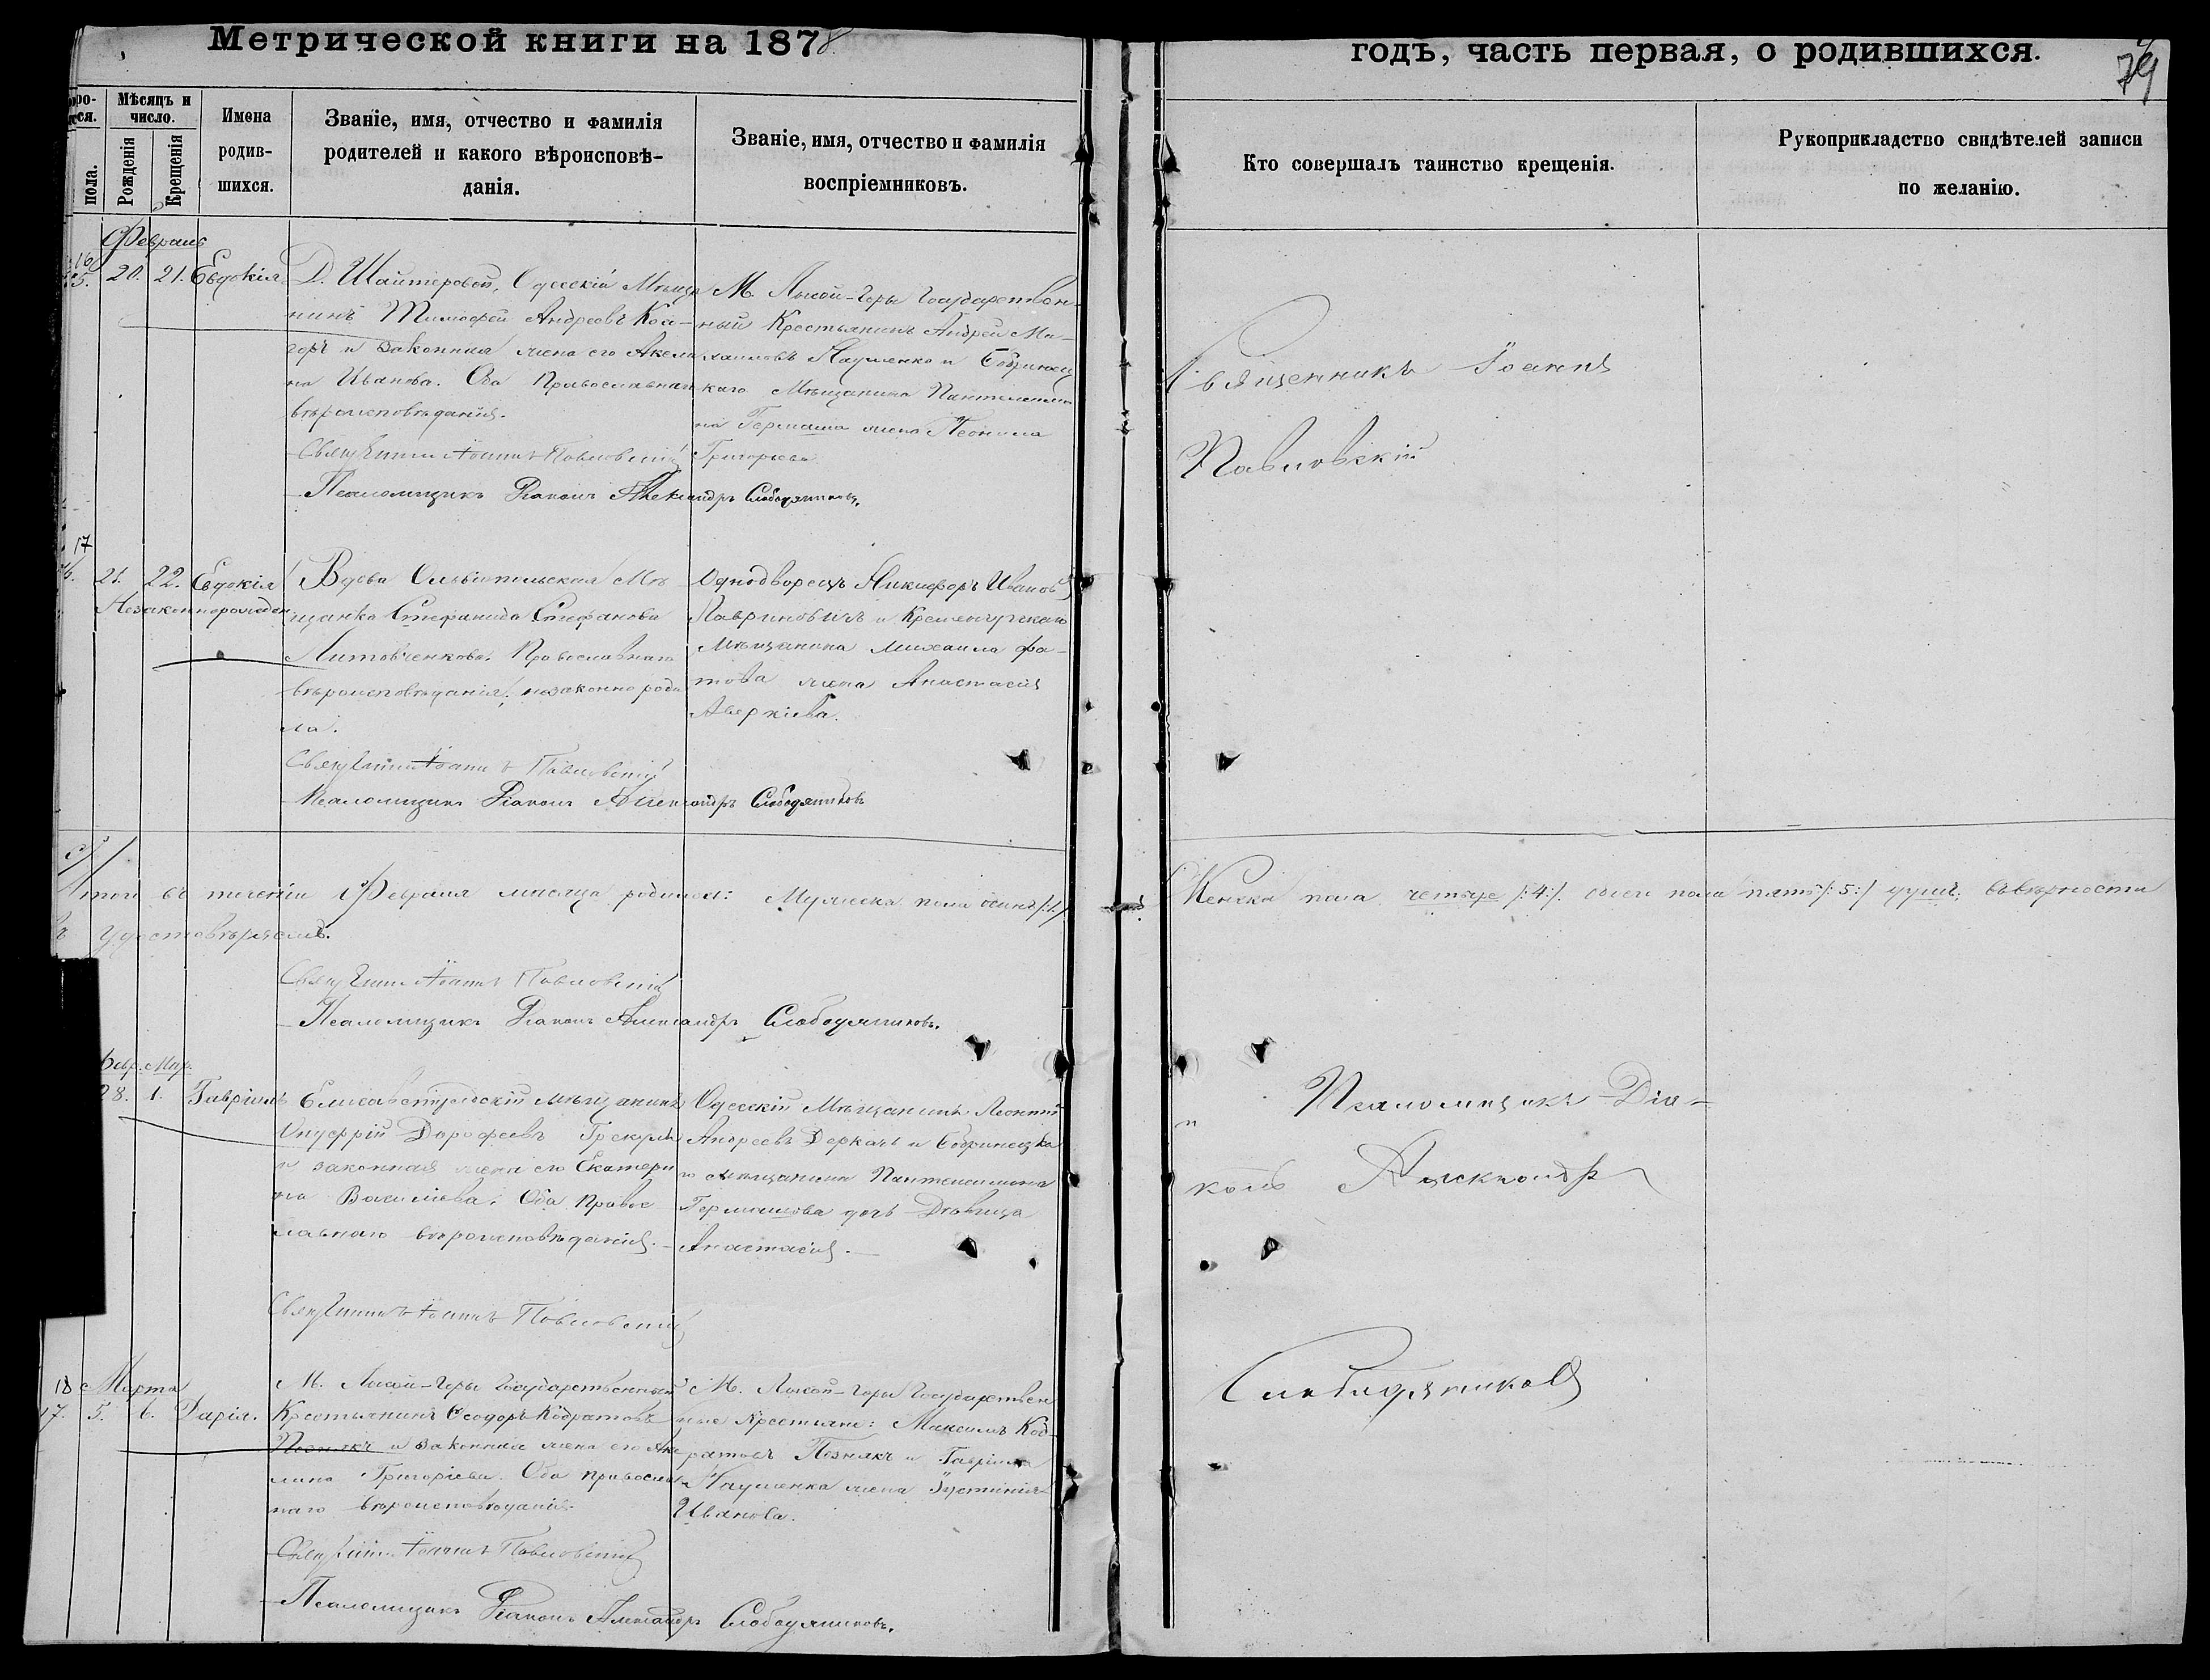 Метрической книги на 1878
годъ, часть первая, о родившихся.
79
Мѣсяцъ и число.
Рожденія
Крещенія
пола.
Имена родив-
шихся.
Званіе, имя, отчество и фамилія
родителей и какого вѣроисповѣ-
данія.
Званіе, имя, отчество и фамилія
воспріемниковъ.
Кто совершалъ таинство крещенія.
Рукоприкладство свидѣтелей записи
по желанію.
Февраль
16
20. 21. Евдокія
Д. Шайтеровой, Одесскій Мѣща
нинъ Тимофей Андреевъ
и законная жена его Акели
на Иванова. Оба Православнаго
вѣроисповѣданія.
Священникъ Іоаннъ Павловскій
Псаломщикъ Діаконъ Александръ Слободяниковъ.
М. Лысой-Горы Государствен-
ный Крестьянинъ Андрей Ми-
хаиловъ Науменко и Бобринец
каго Мѣщанина Пантелеимо
на Гермаша жена Неонила
Григорьева
Священникъ Іоаннъ
Павловскій
17
21. 22. Евдокія
Незаконнорожден.
Вдова Ольвіопольская Мѣ
щанка Стефанида Стефанова
Литовченкова. Православнаго
вѣроисповѣданія; незаконно роди
ла.
Священникъ Іоаннъ Павловскій
Псаломщикъ Діаконъ Александръ Слободяниковъ
Однодворецъ Никифоръ Ивановъ
Лавриновичъ и Кременчугскаго
мѣщанина Михаила Фа-
това жена Анастасія
Аверкіева.
Итого въ теченіи Февраля мѣсяца родилось: Мужеска пола одинъ /:1:/
Женска пола четыре /:4:/. обоего пола пять /:5:/ душъ; въ вѣрности
удостовѣряемъ.
Священникъ Іоаннъ Павловскій
Псаломщикъ Діаконъ Александръ Слободяниковъ.
Февр. Мар.
28. 1. Гавріилъ
Елисаветградскій мѣщанинъ
Онуфрій Дорофеевъ Грекулъ
и законная жена его Екатери
на Васильева. Оба Правос
лавнаго вѣроисповѣданія.
Священникъ Іоаннъ Павловскій
Одесскій Мѣщанинъ Леонтій
Андреевъ Деркачъ и Бобринецка
го мѣщанина Пантелеимона
Гермашова дочь Дѣвица
Анастасія.
и Псаломщикъ Діа-
конъ Александръ
Слободяниковъ
18 Марта
17. 5. 6. Дарія.
М. Лысой-Горы Государственный
Крестьянинъ Ѳеодоръ Кодратовъ
Познякъ и законная жена его Аку
лина Григоріева. Оба православ
наго вѣроисповѣданія.
Священникъ Іоаннъ Павловскій
Псаломщикъ Діаконъ Александръ Слободяниковъ.
М. Лысой-Горы Государствен
ные Крестьяне: Максимъ Код-
ратовъ Познякъ и Гавріила
Науменка жена Іустинія
Иванова.